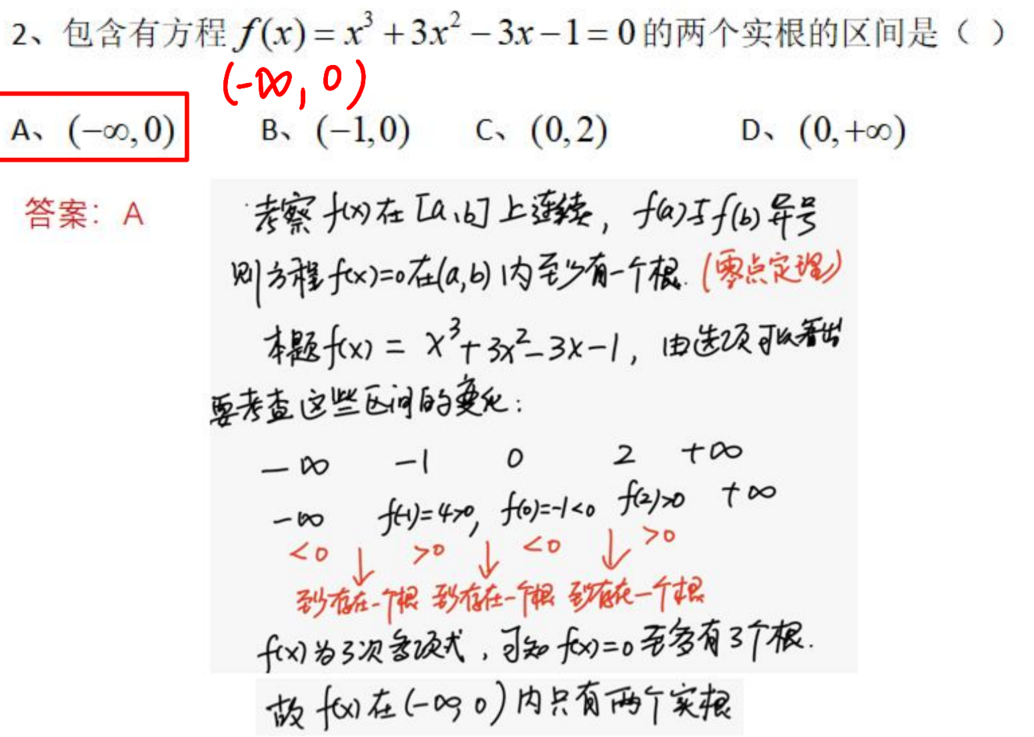 2、包含有方程 f(x) = x³ + 3x² − 3x − 1 = 0 的两个实根的区间是（ ）
(-∞, 0)
A、(−∞,0) B、(−1,0) C、(0,2) D、(0,+∞)
答案：A
考察 f(x) 在 [a,b] 上连续，f(a)与f(b)异号
则方程 f(x)=0 在(a,b) 内至少有一个根.(零点定理)
本题f(x) = x³+3x²-3x-1，由选项可以看出
要考查这些区间的变化：
-∞ -1 0 2 +∞
-∞ f(-1)=4>0, f(0)=-1<0 f(2)>0 +∞
<0 ↓ >0 ↓ <0 ↓ >0
至少存在一个根 至少存在一个根 至少存在一个根
f(x)为3次多项式，可知 f(x)=0 至多有3个根.
故 f(x) 在(-∞, 0) 内只有两个实根